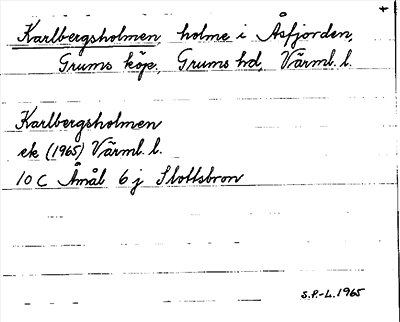 +
Karlbergsholmen, holme i Åsfjorden,
Grums köp., Grums hd, Värml. l.
Karlbergsholmen
ek (1965) Värml. l.
10 C Åmål 6 j Slottsbron
S.P.-L. 1965